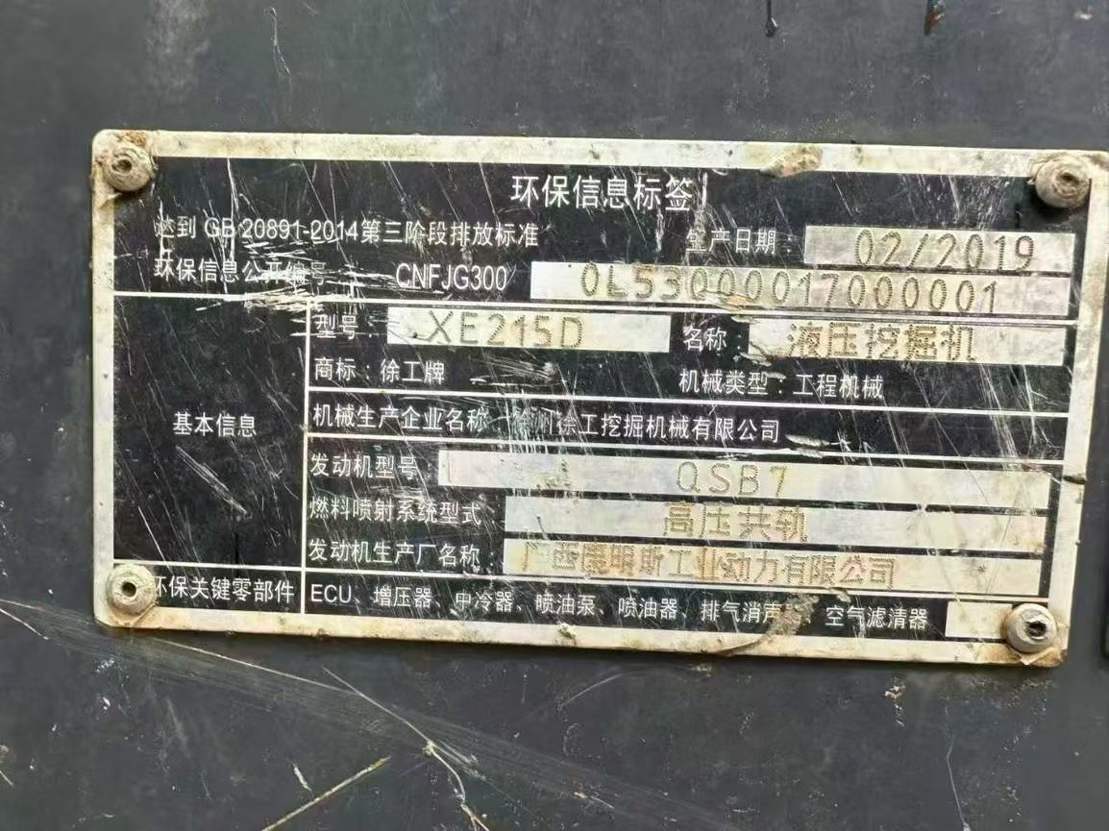 环保信息标签
达到 GB 20891-2014第三阶段排放标准 生产日期: 02/2019
环保信息公开编号 CNFJG300 0L53000017000001
基本信息
型号: XE215D 名称: 液压挖掘机
商标: 徐工牌 机械类型: 工程机械
机械生产企业名称 徐州徐工挖掘机械有限公司
发动机型号 QSB7
燃料喷射系统型式 高压共轨
发动机生产厂名称: 广西康明斯工业动力有限公司
环保关键零部件 ECU、增压器、中冷器、喷油泵、喷油器、排气消声器、空气滤清器